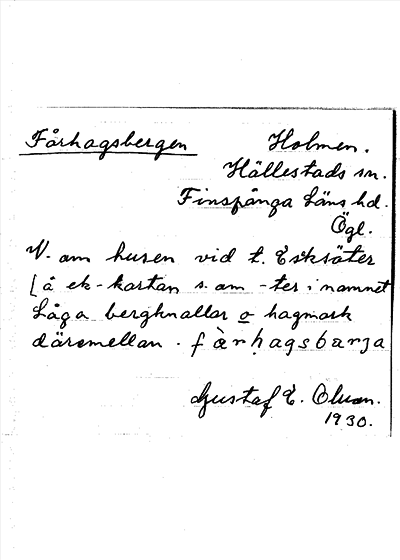 Fårhagsbergen
Holmen.
Hällestads sn.
Finspånga Läns hd.
Ögl.
V. om husen vid t. Esksäter
[å ek-kartan s. om -ter i namnet
Låga bergknallar o hagmark
däremellan. fàrhagsbarja
Gustaf E. Olson.
1930.